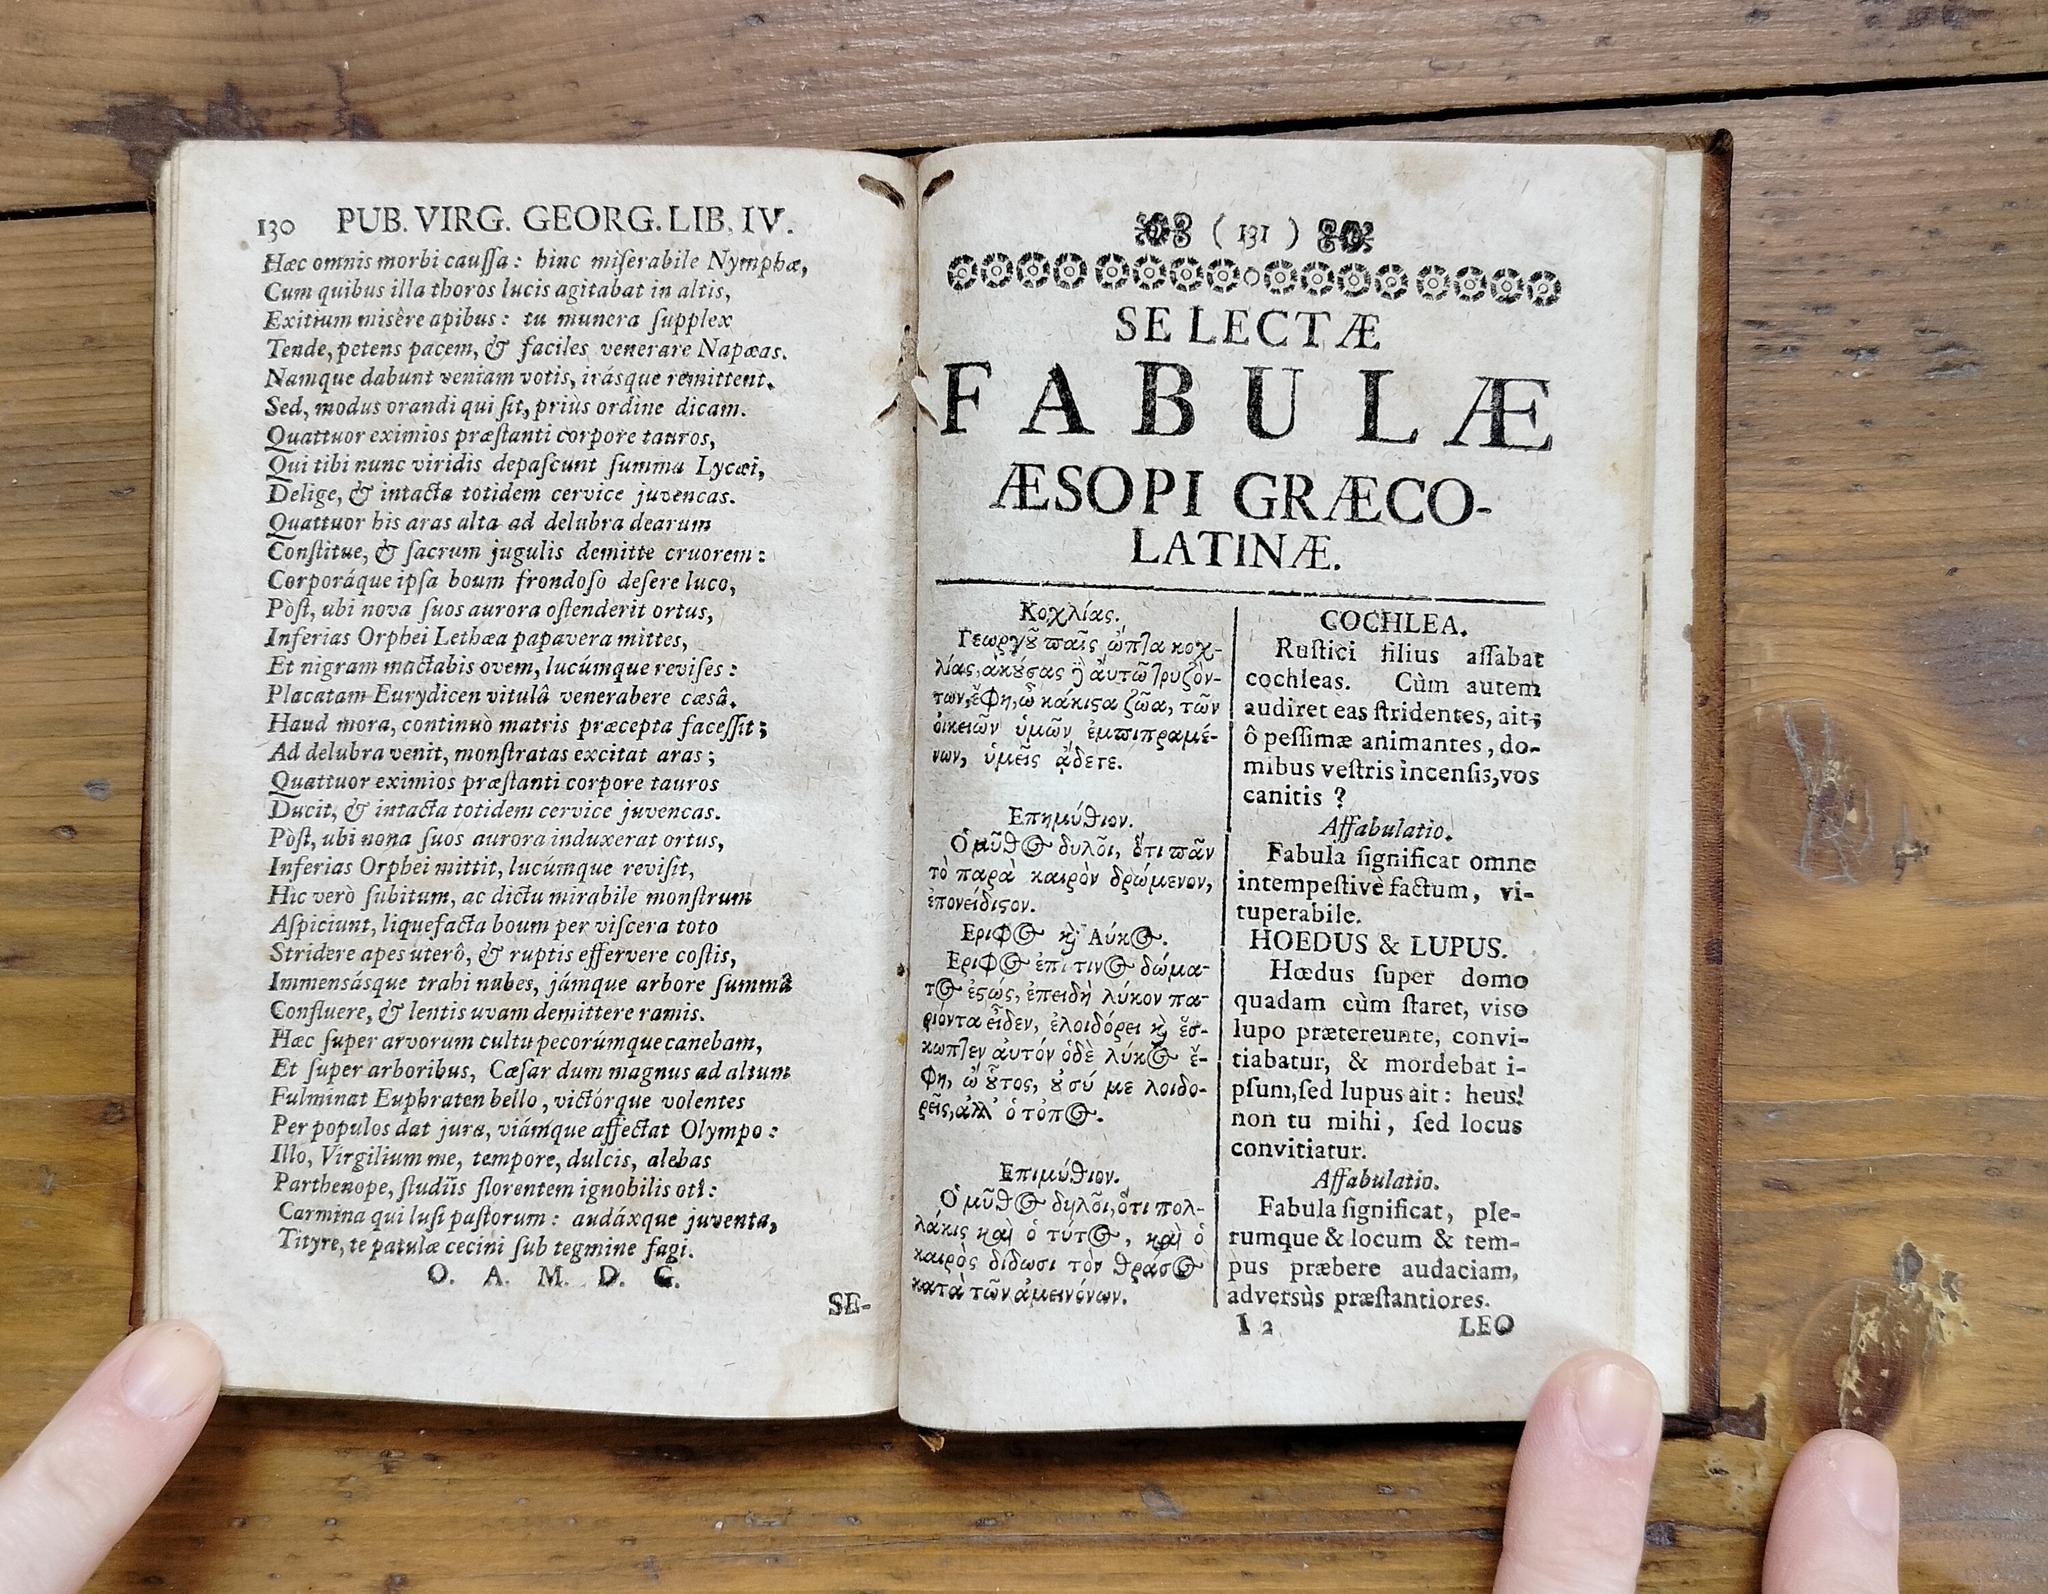 130 PUB. VIRG. GEORG. LIB. IV.
Hæc omnis morbi caussa: hinc miserabile Nymphæ,
Cum quibus illa thoros lucis agitabat in altis,
Exitium misêre apibus: tu munera supplex
Tende, petens pacem, & faciles venerare Napæas.
Namque dabunt veniam votis, irásque remittent.
Sed, modus orandi qui sit, priùs ordine dicam.
Quattuor eximios præstanti corpore tauros,
Qui tibi nunc viridis depascunt summa Lycæi,
Delige, & intacta totidem cervice juvencas.
Quattuor his aras alta ad delubra dearum
Constitue, & sacrum jugulis demitte cruorem:
Corporáque ipsa boum frondoso desere luco,
Pòst, ubi nova suos aurora ostenderit ortus,
Inferias Orphei Lethæa papavera mittes,
Et nigram mactabis ovem, lucúmque revises:
Placatam Eurydicen vitulâ venerabere cæsâ.
Haud mora, continuò matris præcepta facessit;
Ad delubra venit, monstratas excitat aras;
Quattuor eximios præstanti corpore tauros
Ducit, & intacta totidem cervice juvencas.
Pòst, ubi nona suos aurora induxerat ortus,
Inferias Orphei mittit, lucúmque revisit,
Hic verò subitum, ac dictu mirabile monstrum
Aspiciunt, liquefacta boum per viscera toto
Stridere apes uterô, & ruptis effervere costis,
Immensásque trahi nubes, jámque arbore summâ
Confluere, & lentis uvam demittere ramis.
Hæc super arvorum cultu pecorúmque canebam,
Et super arboribus, Cæsar dum magnus ad altum
Fulminat Euphraten bello, victórque volentes
Per populos dat jura, viámque affectat Olympo:
Illo, Virgilium me, tempore, dulcis, alebas
Parthenope, studiïs florentem ignobilis otî:
Carmina qui lusi pastorum: audáxque juventa,
Tityre, te patulæ cecini sub tegmine fagi.
O. A. M. D. G.
SE-
( 131 )
SELECTÆ
FABULÆ
ÆSOPI GRÆCO-
LATINÆ.
Κοχλίας.
Γεωργȣ͂ παῖς ὤπlα κοχ-
λίας, ἀκȣσας ἢ ἀυτῶ lρυζόν-
των, ἔφη, ὦ κάκιϛα ζῶα, τῶν
ὀικειῶν ὑμῶν ἐμπιπραμέ-
νων, ὑμεῖς ᾄδετε.
Επημύθιον.
Ὁ μῦθος δυλοῖ, ὅτι πᾶν
τὸ παρὰ καιρὸν δρώμενον,
ἐπονείδιϛον.
Εριφος ϗ Λύκος.
Εριφος ἐπί τινος δώμα-
τος ἐϛώς, ἐπειδὴ λύκον πα-
ριόντα εἶδεν, ἐλοιδόρει ϗ ἔσ-
κωπlεν ἀυτόν ὁδὲ λύκος ἔ-
φη, ὦ ȣ̃τος, ȣ σύ με λοιδο-
ρεῖς, ἀλλ' ὁ τόπος.
Επιμύθιον.
Ὁ μῦθος δηλοῖ, ὅτι πολ-
λάκις καὶ ὁ τύτος, καὶ ὁ
καιρὸς δίδωσι τὸν θράσος
κατὰ τῶν ἀμεινόνων.
COCHLEA.
Rustici filius assabat
cochleas. Cùm autem
audiret eas stridentes, ait;
ô pessimæ animantes, do-
mibus vestris incensis, vos
canitis?
Affabulatio.
Fabula significat omne
intempestivè factum, vi-
tuperabile.
HOEDUS & LUPUS.
Hœdus super domo
quadam cùm staret, viso
lupo prætereunte, convi-
tiabatur, & mordebat i-
psum, sed lupus ait: heus!
non tu mihi, sed locus
convitiatur.
Affabulatio.
Fabula significat, ple-
rumque & locum & tem-
pus præbere audaciam,
adversùs præstantiores.
I 2 LEO